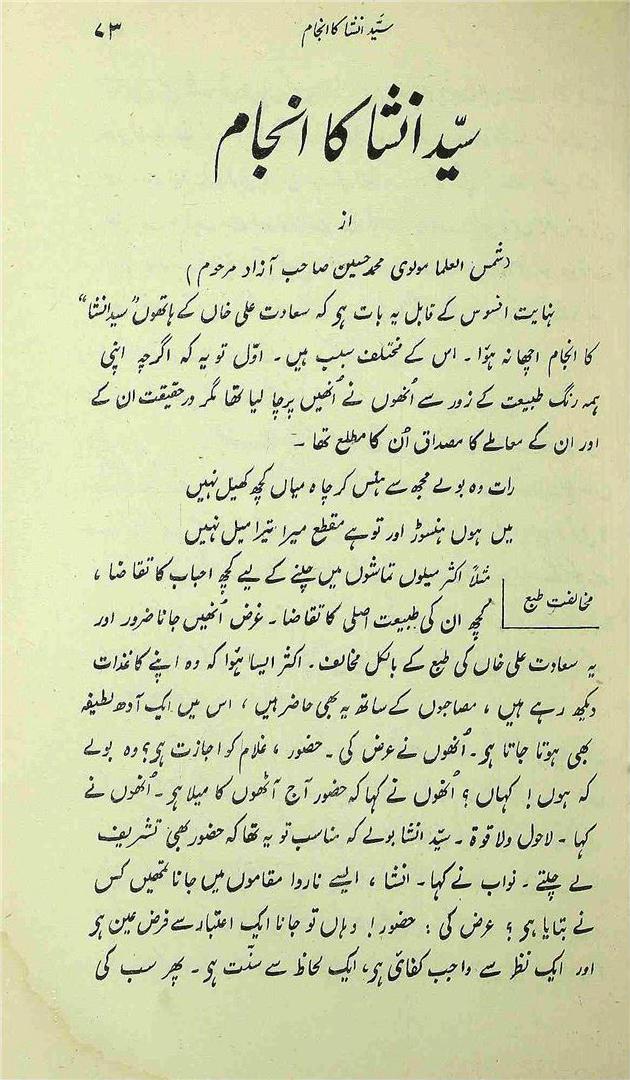 سیّد انشا کا انجام ۷۳
سیّد انشا کا انجام
از
(شمس العلما مولوی محمد حسین صاحب آزاد مرحوم)
نہایت افسوس کے قابل یہ بات ہی کہ سعادت علی خاں کے ہاتھوں "سید انشا"
کا انجام اچھا نہ ہؤا ۔ اس کے مختلف سبب ہیں ۔ اوّل تو یہ کہ اگرچہ اپنی
ہمہ رنگ طبیعت کے زور سے اُنھوں نے اُنھیں پرچا لیا تھا مگر درحقیقت ان کے
اور ان کے معاملے کا مصداق اُن کا مطلع تھا ۔
رات وہ بولے مجھ سے ہنس کر چاہ میاں کچھ کھیل نہیں
میں ہوں ہنسوڑ اور تو ہے مقطع میرا تیرا میل نہیں
مخالفتِ طبع
مثلاً اکثر میلوں تماشوں میں چلنے کے لیے کچھ احباب کا تقاضا ،
کچھ ان کی طبیعت اصلی کا تقاضا ۔ غرض اُنھیں جانا ضرور اور
یہ سعادت علی خاں کی طبع کے بالکل مخالف ۔ اکثر ایسا ہؤا کہ وہ اپنے کاغذات
دیکھ رہے ہیں ، مصاحبوں کے ساتھ یہ بھی حاضر ہیں ، اس میں ایک آدھ لطیفہ
بھی ہوتا جاتا ہی ۔ اُنھوں نے عرض کی ۔ حضور ، غلام کو اجازت ہی؟ وہ بولے
کہ ہوں ! کہاں ؟ اُنھوں نے کہا کہ حضور آج آٹھوں کا میلا ہی ۔ اُنھوں نے
کہا ۔ لاحول ولا قوۃ ۔ سیّد انشا بولے کہ مناسب تو یہ تھا کہ حضور بھی تشریف
لے چلتے ۔ نواب نے کہا ۔ انشا ، ایسے ناروا مقاموں میں جانا تمھیں کس
نے بتایا ہی ؟ عرض کی : حضور ! وہاں تو جانا ایک اعتبار سے فرض عین ہی
اور ایک نظر سے واجب کفائی ہی، ایک لحاظ سے سنّت ہی ۔ پھر سب کی